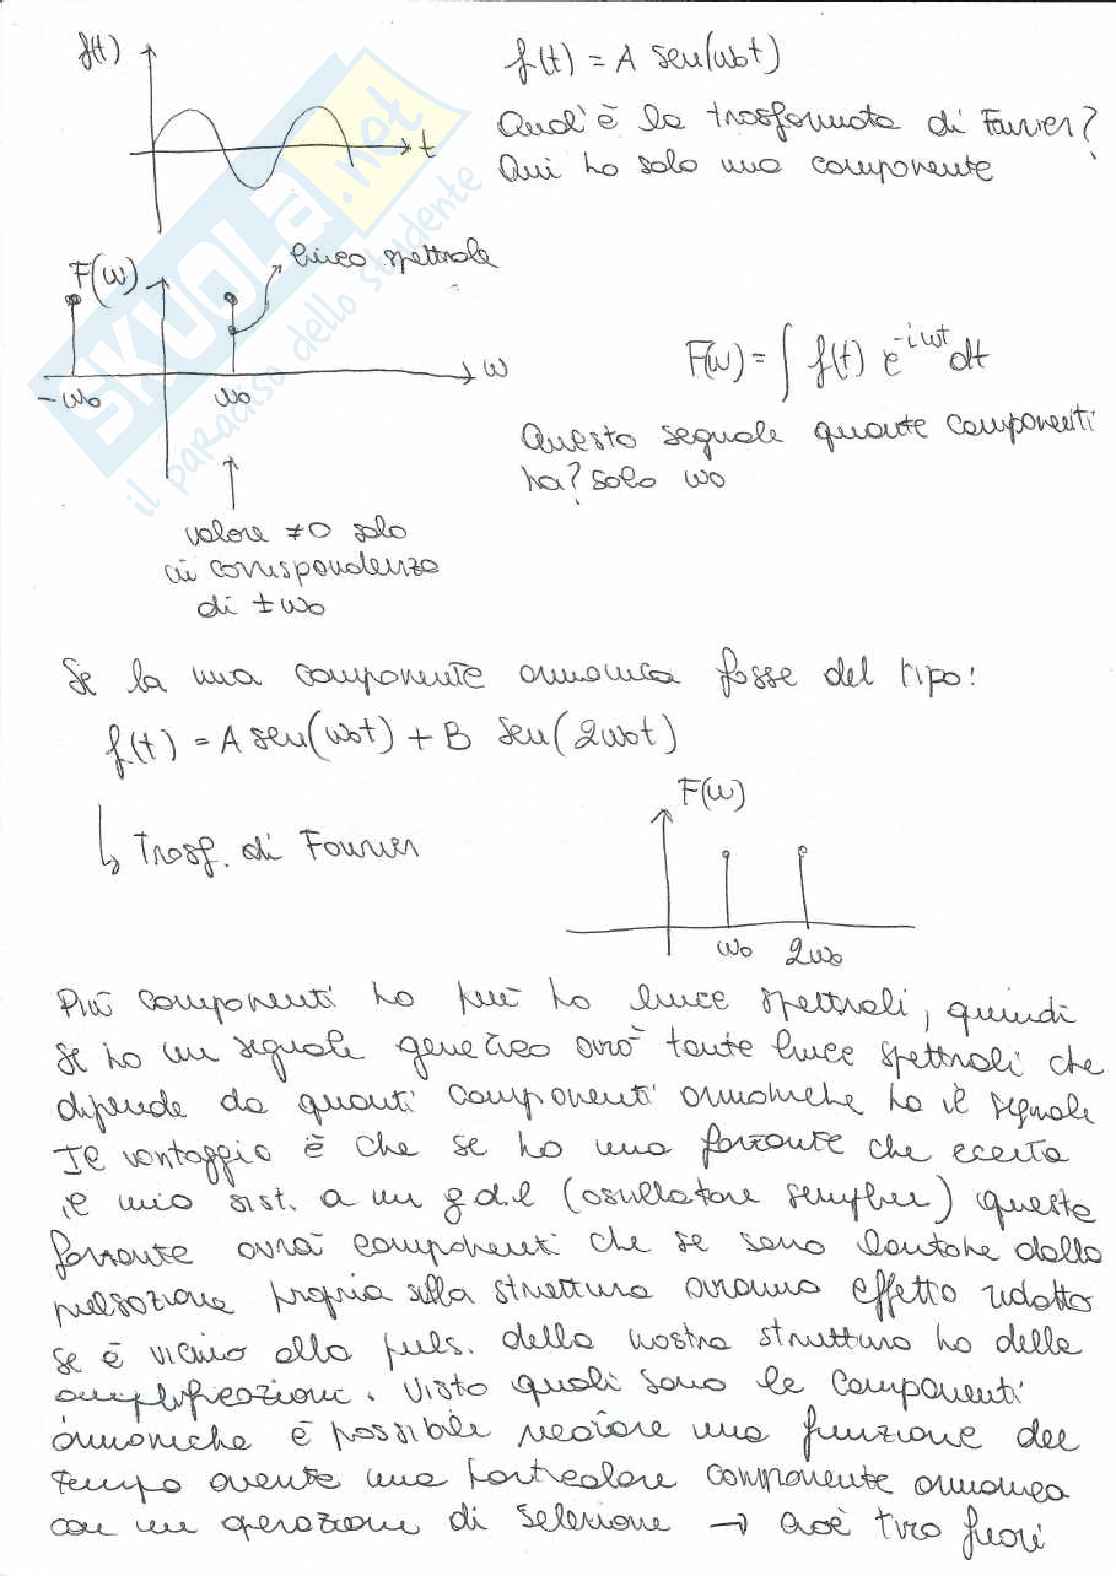 f(t)
t
f(t) = A sen(ω₀t)
Qual'è la trasformata di Fourier?
Qui ho solo una componente
SKUOLA.net
il paradiso dello studente
F(ω)
linea spettrale
ω
-ω₀
ω₀
F(ω) = ∫ f(t) e^{-iωt} dt
Questo segnale quante componenti
ha? solo ω₀
valore ≠0 solo
in corrispondenza
di ±ω₀
Se la mia componente armonica fosse del tipo:
f(t) = A sen(ω₀t) + B sen(2ω₀t)
↳ Trasf. di Fourier
F(ω)
ω₀ 2ω₀
Più componenti ho più ho linee spettrali, quindi
se ho un segnale generico avrò tante linee spettrali che
dipende da quanti componenti armoniche ha il segnale
Il vantaggio è che se ho una forzante che eccita
il mio sist. a un g.d.l (oscillatore semplice) questa
forzante avrà componenti che se sono lontane dalla
pulsazione propria della struttura avranno effetto ridotto
se è vicino alla puls. della nostra struttura ho delle
amplificazioni. Visto quali sono le componenti
armoniche è possibile una funzione del
tempo avente una particolare componente armonica
con un operazione di selezione → cioè tiro fuori